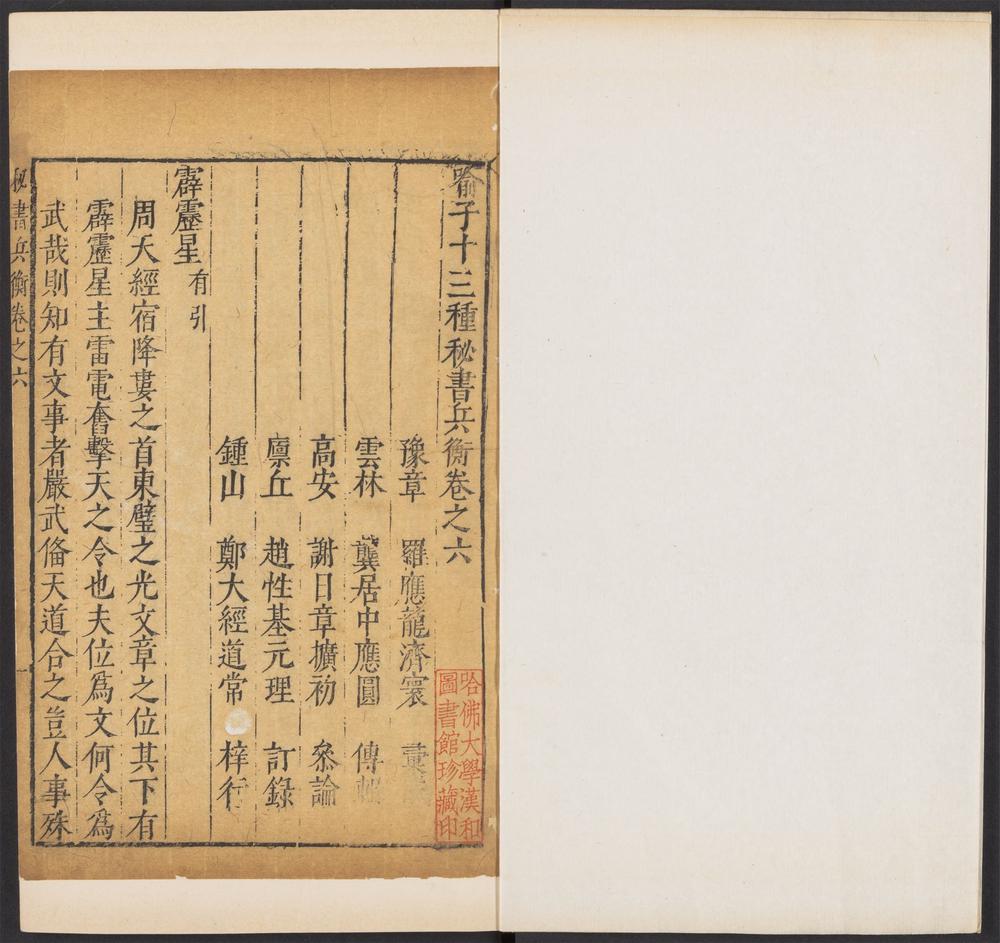 喻子十三種秘書兵衡卷之六
豫章 羅應龍濟寰 彙
雲林 龔居中應圓 傳
高安 謝日章擴初 叅論
廪丘 趙性基元理 訂錄
鍾山 鄭大經道常 梓行
霹靂星 有引
周天經宿降婁之首東壁之光文章之位其下有
霹靂星主雷電奮擊天之令也夫位爲文何令爲
武哉則知有文事者嚴武俻天道合之豈人事殊
秘書兵衡卷之六 一
哈佛大學漢和
圖書館珍藏印